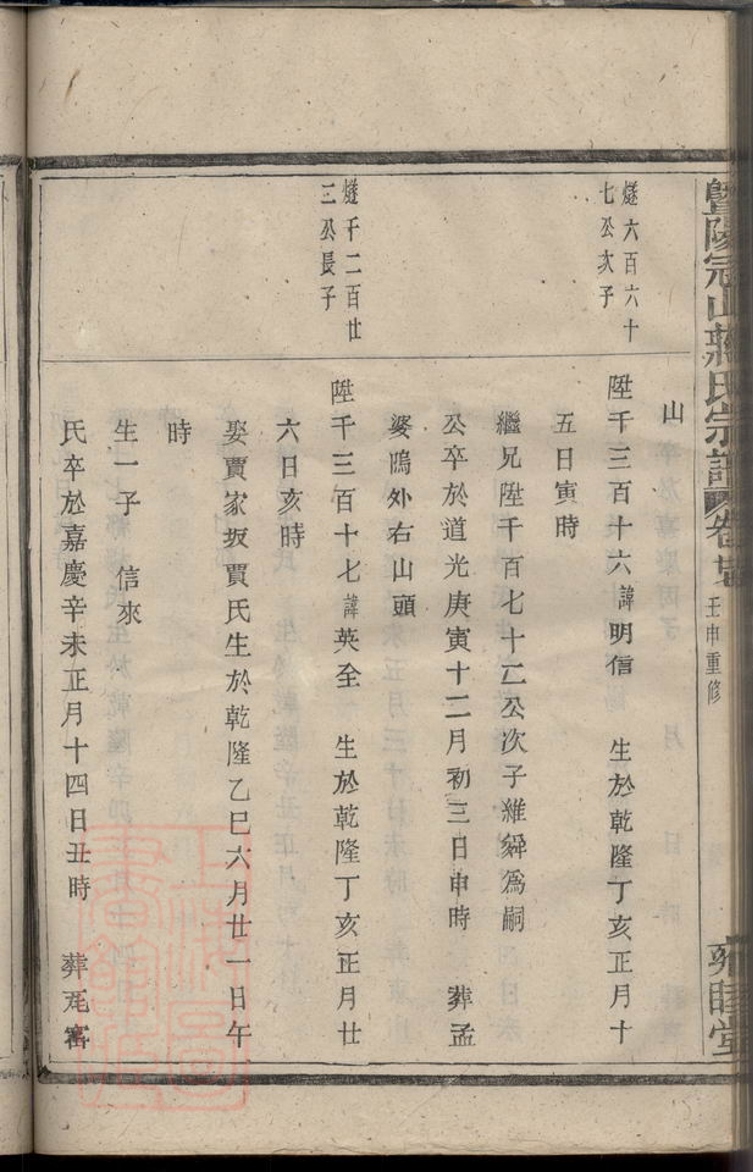 暨陽宗山蔣氏宗譜 卷 壬申重修 雍睦堂
山
燧六百六十
七公次子
陞千三百十六諱明信 生於乾隆丁亥正月十
五日寅時
繼兄陞千百七十二公次子維舜爲嗣
公卒於道光庚寅十二月初三日申時 葬孟
婆隖外右山頭
燧千二百廿
三公長子
陞千三百十七諱英全 生於乾隆丁亥正月廿
六日亥時
娶賈家坂賈氏生於乾隆乙巳六月廿一日午
時
生一子 信來
氏卒於嘉慶辛未正月十四日丑時 葬瓦窑